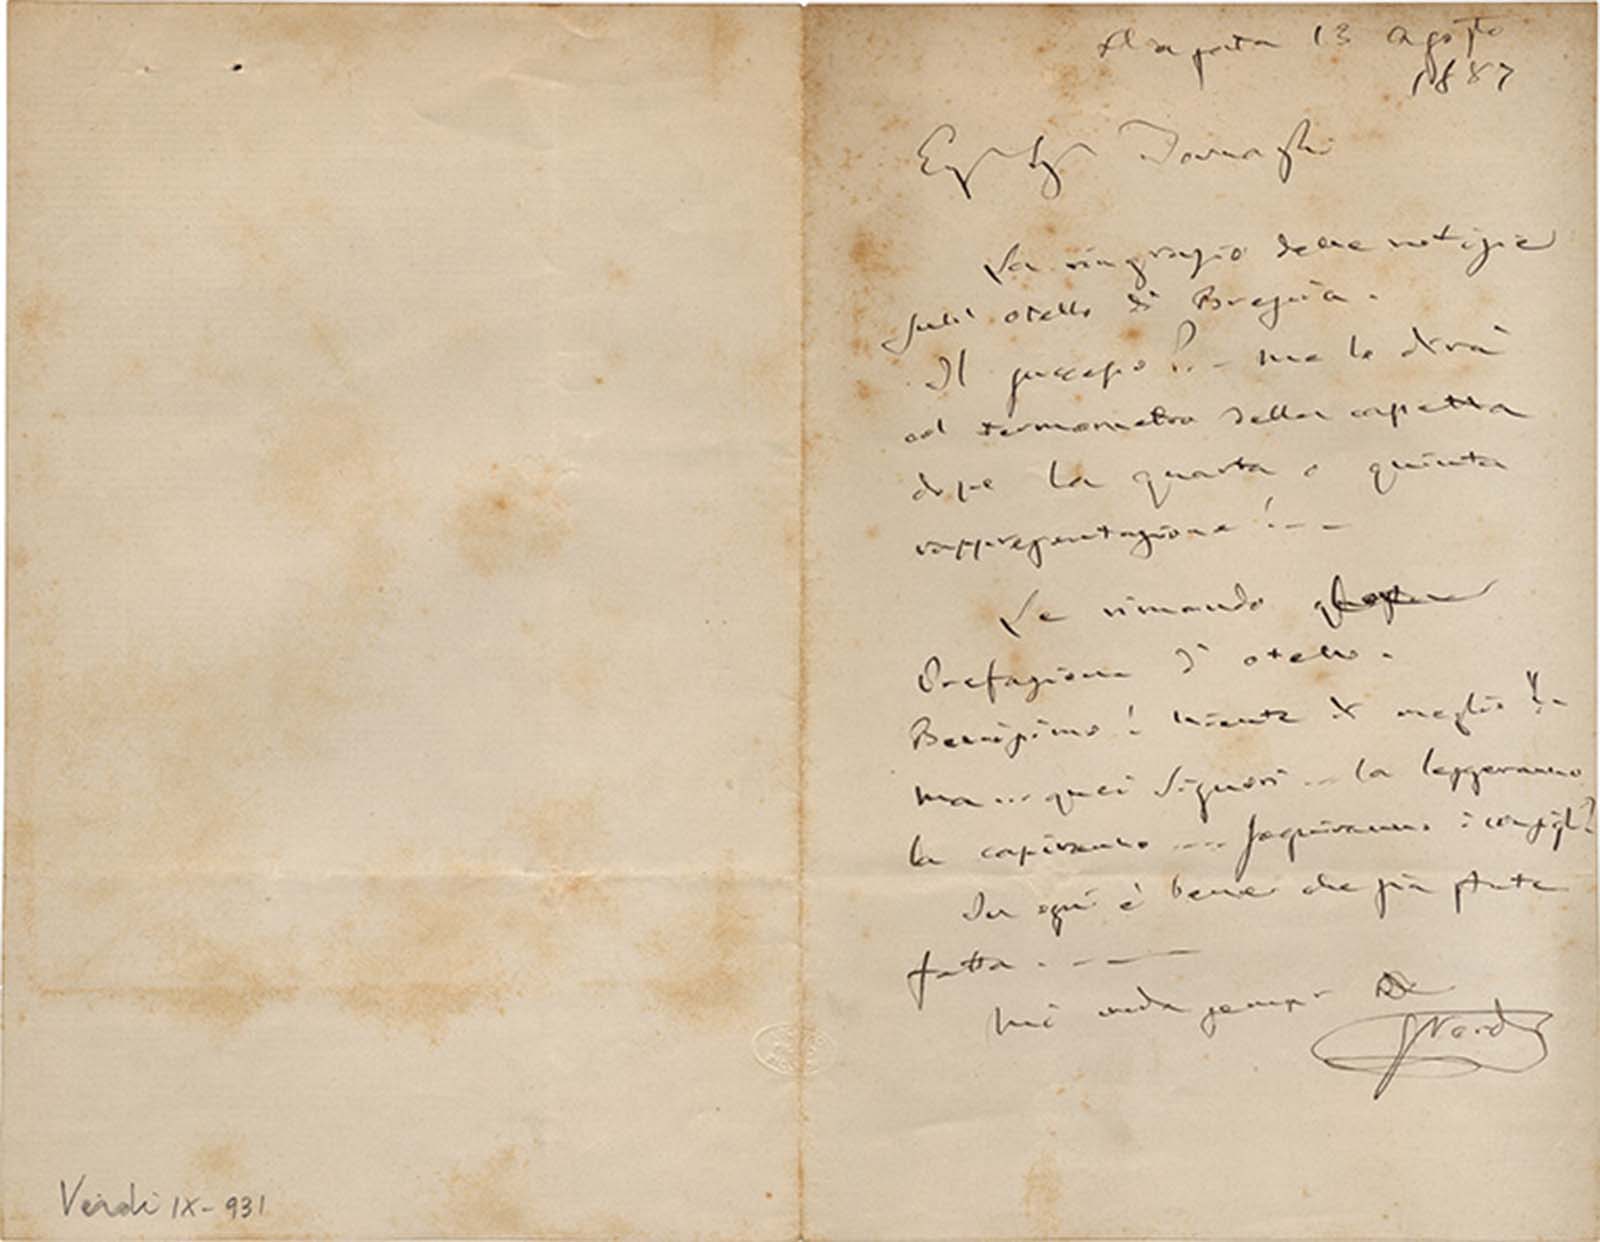 St Agata 13 Agosto
1887
Eg. Sig. Tornaghi
La ringrazio delle notizie
sull' Otello di Brescia.
Il successo?.. – me lo dirà
col termometro della cassetta
dopo la quarta o quinta
rappresentazione!---
Le rimando
Prefazione d' Otello.
Benissimo! niente di meglio!!-
ma... quei Signori... la leggeranno
la capiranno .... seguiranno i consigli?
In ogni è bene che sia stata
fatta.-——
Mi creda sempre
GVerdi
Verdi IX-931